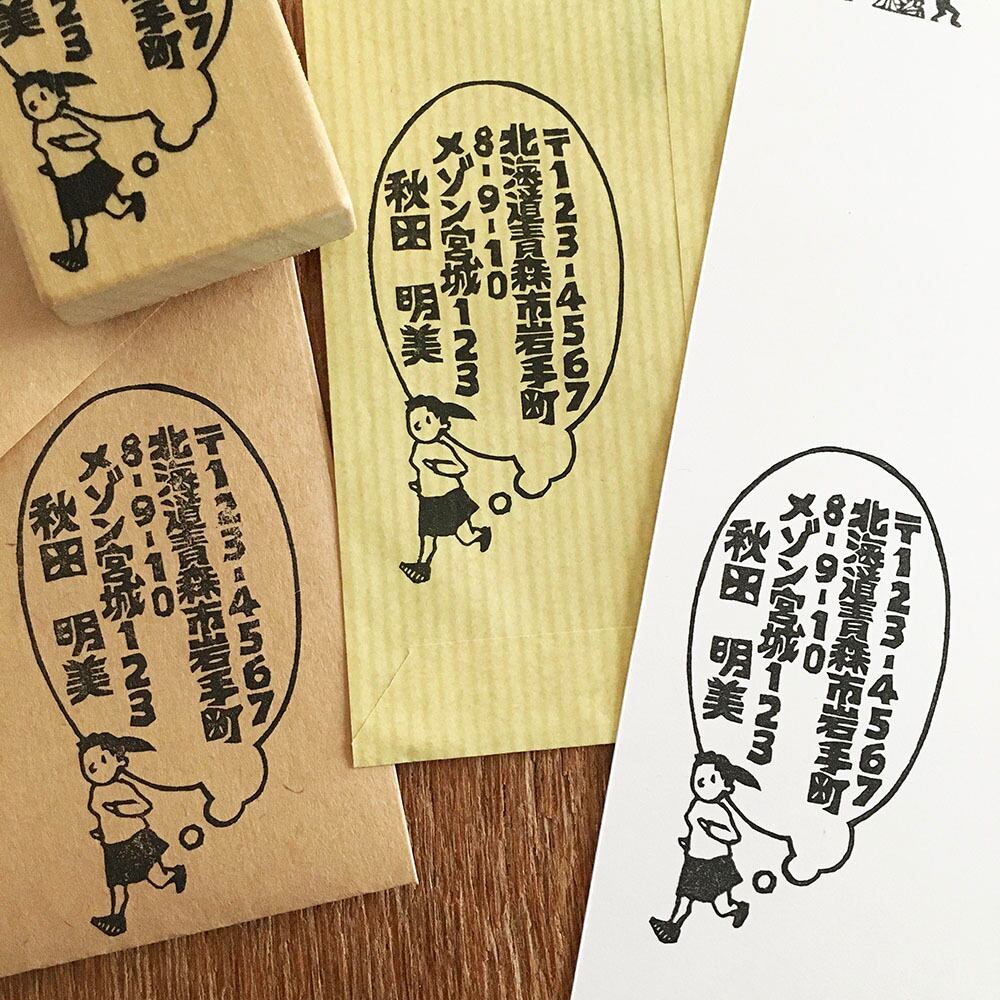 〒123-4567
北海道青森市岩手町
8-9-10
メゾン宮城123
秋田 明美
〒123-4567
北海道青森市岩手町
8-9-10
メゾン宮城123
秋田 明美
〒123-4567
北海道青森市岩手町
8-9-10
メゾン宮城123
秋田 明美
67
手町
123
美